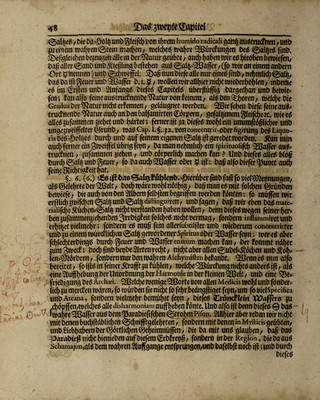 48 Das zweyte Capitel
Saltzes, die da Holtz und Fleisch von ihrem humido radicali gantz austrucknen, und
zu einem wahren Stein machen, welches wahre Würckungen des Saltzes sind.
Desgleichen bezeugen alle in der Natur grubte, auch haben wir es hieroben bewiesen,
daß aller Sand und Kießling bestehen aus Saltz-Wasser, (so wir an einem andern
Ort nennen) und Schwöffel. Daß nun diese alle nur eines sind, nehmlich Saltz,
das da ist Feuer und Wasser d. i. wollen wir allhier nicht wiederhohlen, indeme
es im Ersten und Anfangs dieses Capitels überflüßig dargethan und bewie-
sen: kan also seine austrucknende Natur von keinem, als den Thoren, welche die
Gradus der Natur nicht erkennen, geläugnet werden. Wir sehen diese seine aus-
trucknende Natur auch an den balsamirten Cörpern, gesaltzenem Fleische ꝛc. wie es
alles zusammen gehet und hårtet: ferner ist zu dieses wohl ein unumstößlicher und
ungezweiffelter Grund, was Cap. 1. §. 2. von concentrir- oder figirung des Liquo-
ris des Holtzes durch und auf seinem eigenen Saltz ist geredet worden. Kan nun
auch ferner ein Zweiffel übrig seyn, da man nehmlich ein spirituosisch Wasser aus-
trucknen, zusammen gehen, und cörperlich machen kan? Und dieses alles bloß
durch Saltz und Feuer, so da auch Wasser oder ist: daß also dieser Punct auch
seine Richtigkeit hat.
§. 6. (6.) Es ist das Saltz Kühlend. Hierüber sind fast so viel Meynungen,
als Gelehrte der Welt, doch wäre wohl nichts, daß man es mit solchen Gründen
bewiese, die auch von den Albern selbsten begriffen werden könten: so müssen wir
erstlich zwischen Saltz und Saltz distinguiren, und sagen, daß wir eben das mate-
rialische Küchen-Saltz nicht verstanden haben wollen; denn dieses wegen seiner bey
sich zusammenziehenden Irrdigkeit solches nicht vermag, sondern inflammiret und
erhitzet vielmehr; sondern es muß sein allersubtilster und wiederum concentrirter
und zu einem würcklichen Saltz gewordener Spiritus oder Wasser seyn: wie es aber
schlechterdings durch Feuer und Wasser reniren machen kan, der kommt näher
zum Zweck: doch sind beyde Arten recht, nicht aber allen Sudel-Köchen und Koh-
len-Mördern, sondern nur den wahren Alchymisten bekandt. Wenn es nun also
bereitet, so ist es in seiner Krafft zu kühlen, welche Würckung nichts anders ist, als
eine Auffhebung der Unordnung der Harmonie in der kleinen Welt, und eine Be-
friedigung des Archæi. Welche wenige Worte von allen Medicis wohl und sonder-
lich zu mercken wären, so würden sie nicht so sehr bekümmert seyn, um so viel Specifica
und Arcana, sondern vielmehr bemühet seyn, dieses Trüncklein Wassers zu
schöpffen, welches alle disharmoniam auffheben könte. Und also ist denn dieses das
wahre Wasser aus dem Paradiesischen Strohm Pison. Allhier aber reden wir nicht
mit denen buchstäblichen Schrifftgelehrten, sondern mit denen in Mysticis geübten,
und Liebhabern der Göttlichen Geheimnissen, die da mit uns glauben, daß das
Paradieß nicht hiemieden auf diesem Erdkreyß, sondern in der Region, die da aus
Schamajim, als dem wahren Auffgange entsprungen, und daselbst noch ist: und durch
dieses